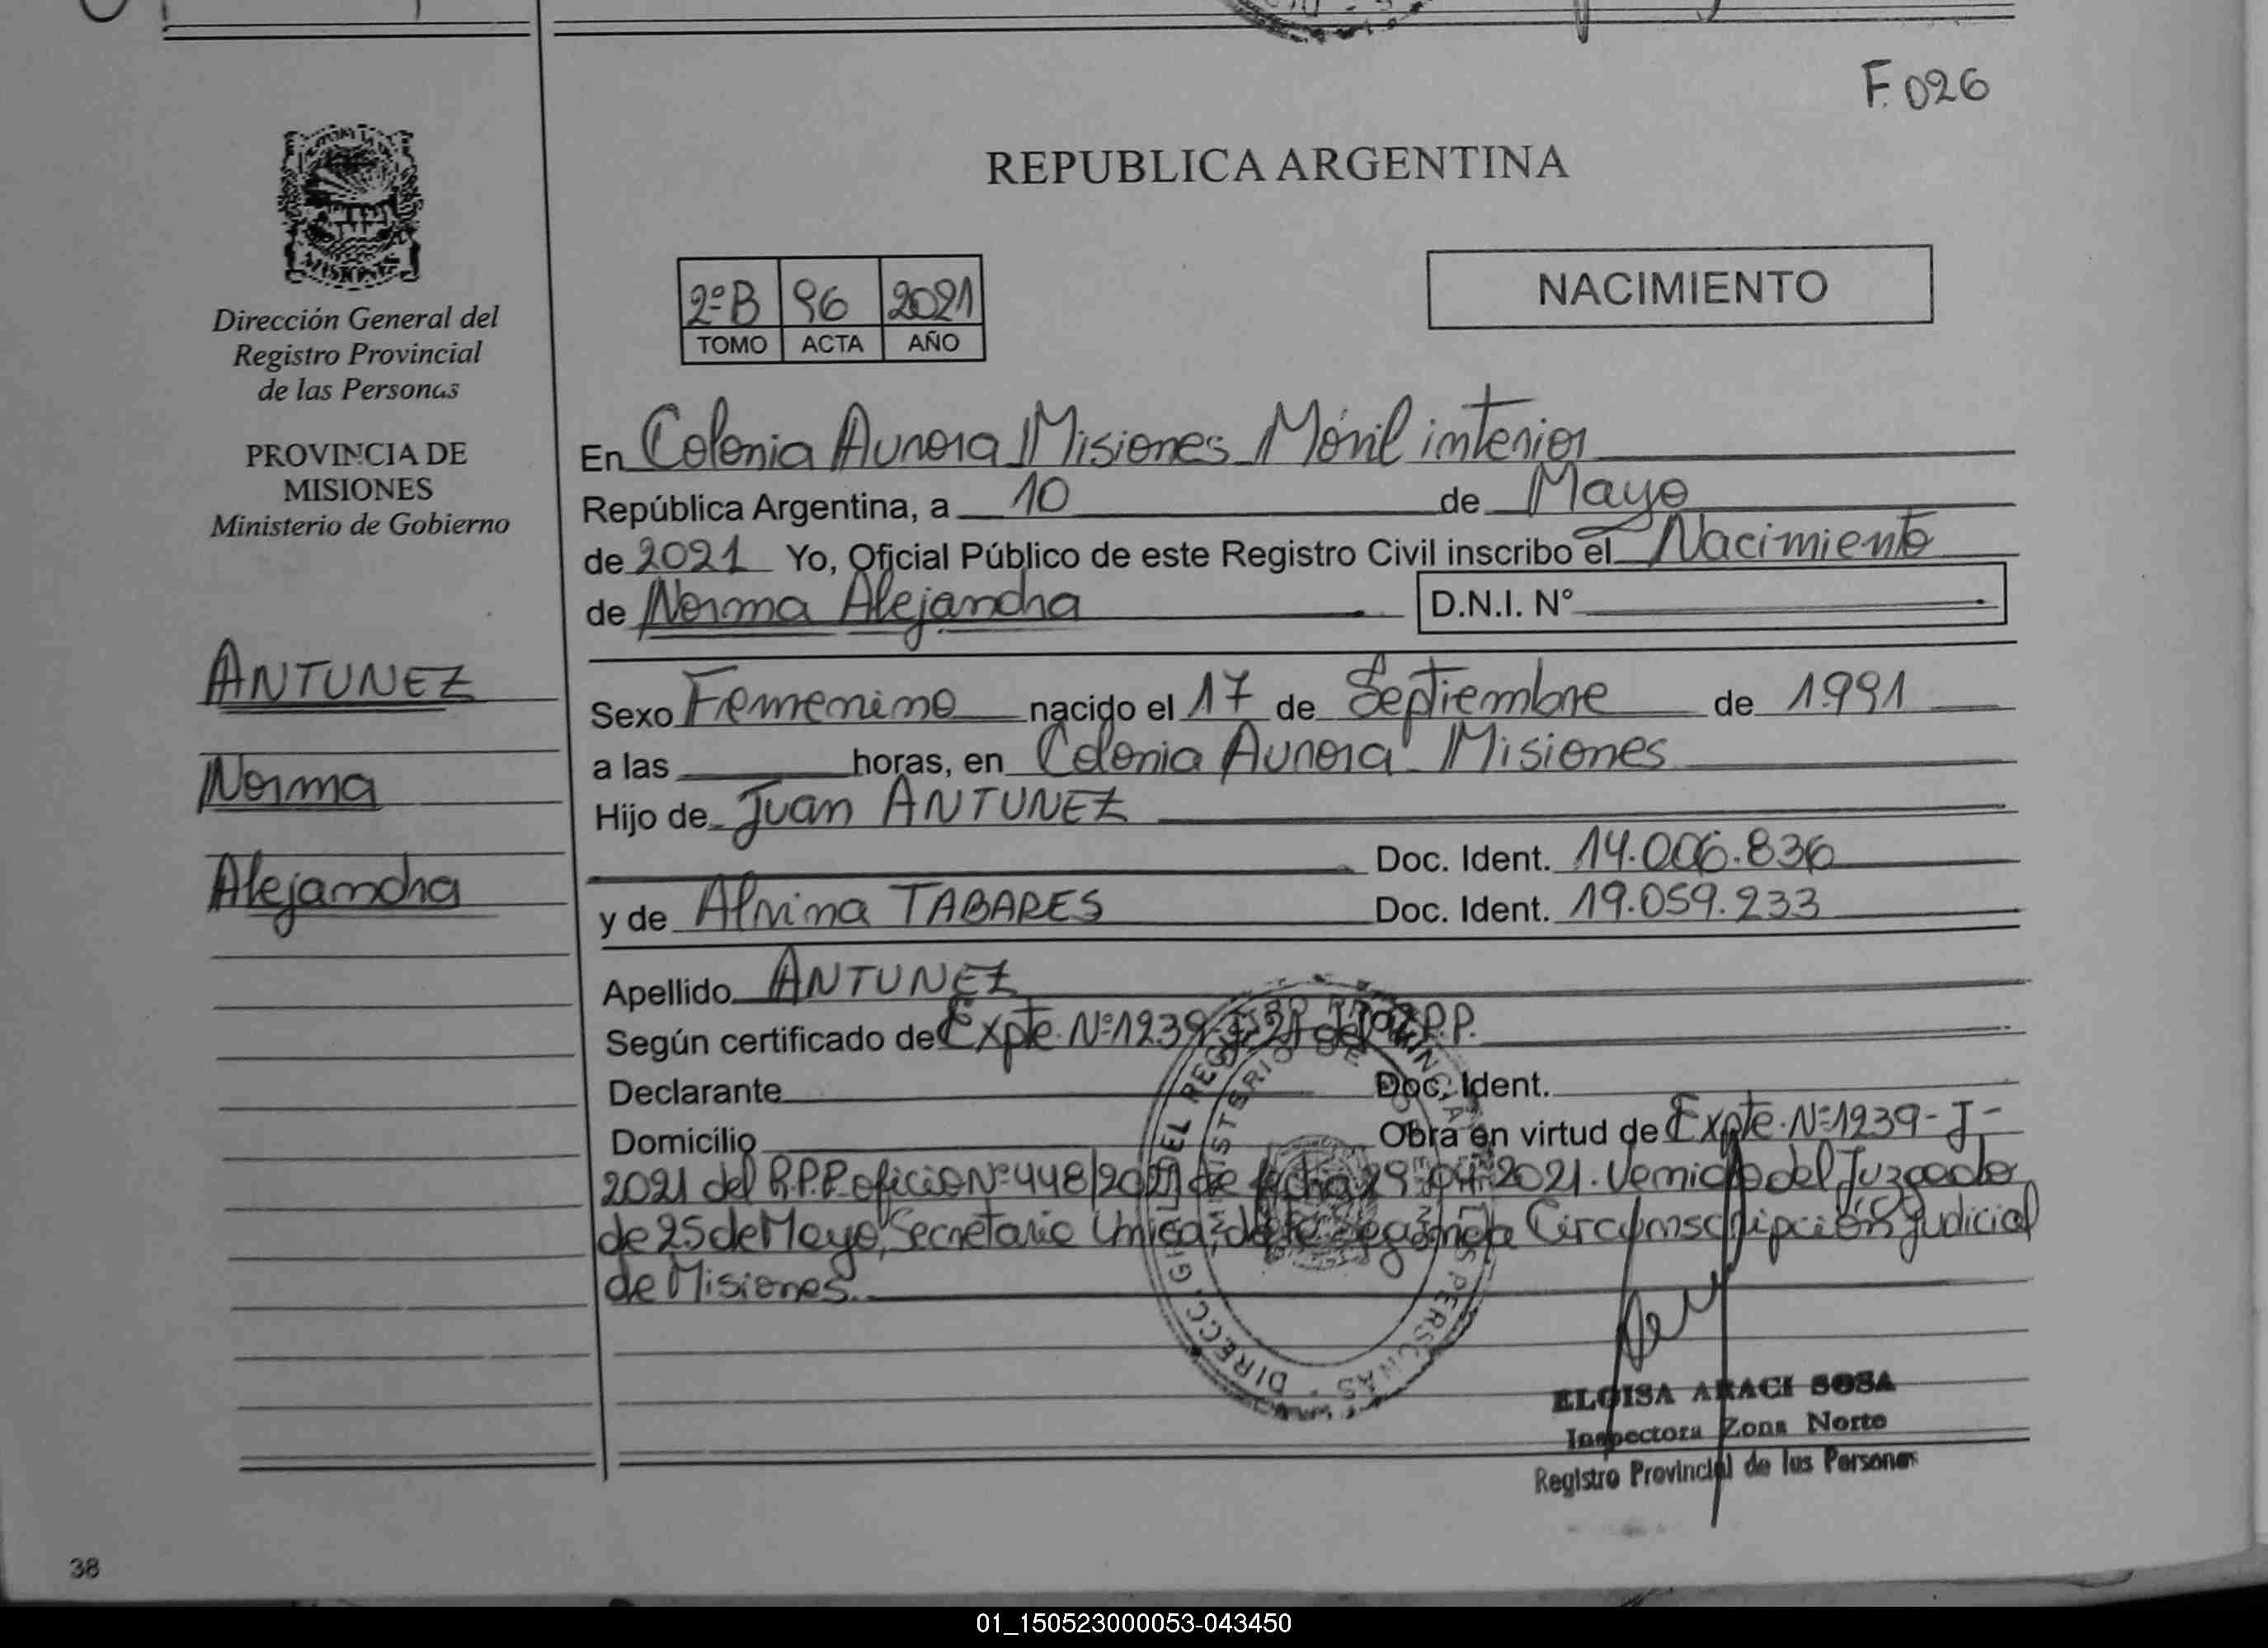 F. 026
REPUBLICA ARGENTINA
Dirección General del
Registro Provincial
de las Personas
PROVINCIA DE
MISIONES
Ministerio de Gobierno
2ºB 96 2021
TOMO ACTA AÑO
NACIMIENTO
En Colonia Aurora Misiones Móvil interior
República Argentina, a 10 de Mayo
de 2021 Yo, Oficial Público de este Registro Civil inscribo el Nacimiento
de Norma Alejandra D.N.I. Nº
ANTUNEZ
Norma
Alejandra
Sexo Femenino nacido el 17 de Septiembre de 1.991
a las horas, en Colonia Aurora Misiones
Hijo de Juan ANTUNEZ
Doc. Ident. 14.006.836
y de Alvina TABARES Doc. Ident. 19.059.233
Apellido ANTUNEZ
Según certificado de Expte. Nº1239-J-21 del R.P.P.
Declarante Doc. Ident.
Domicilio Obra en virtud de Expte. Nº1239-J-
2021 del R.P.P. oficio Nº448/2021 de fecha 29-04-2021. Venido del Juzgado
de 25 de Mayo, Secretaria Unica, de la Segunda Circunscripción Judicial
de Misiones.
DIRECC. GRAL. DEL REG. PERSONAS
MINISTERIO DE
ELOISA ARACI SOSA
Inspectora Zona Norte
Registro Provincial de las Personas
38
01_150523000053-043450